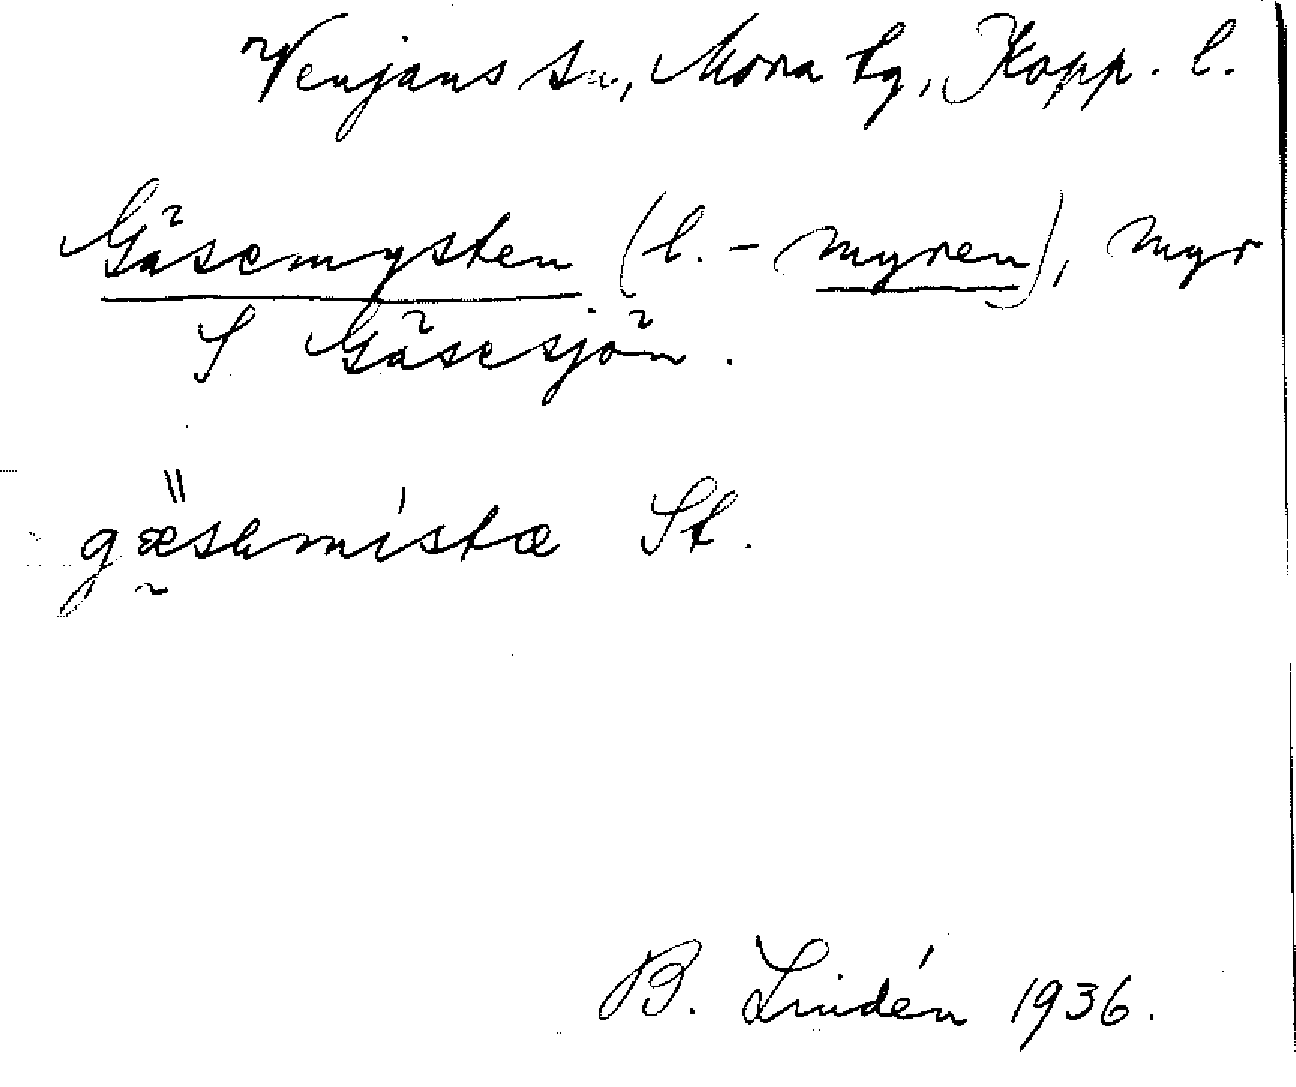 Venjans sn, Mora tg, Kopp. l.
Gäsemysten (l. - myren), myr
S Gäsesjön.
gæ̰səmistæ St.
B. Lindén 1936.